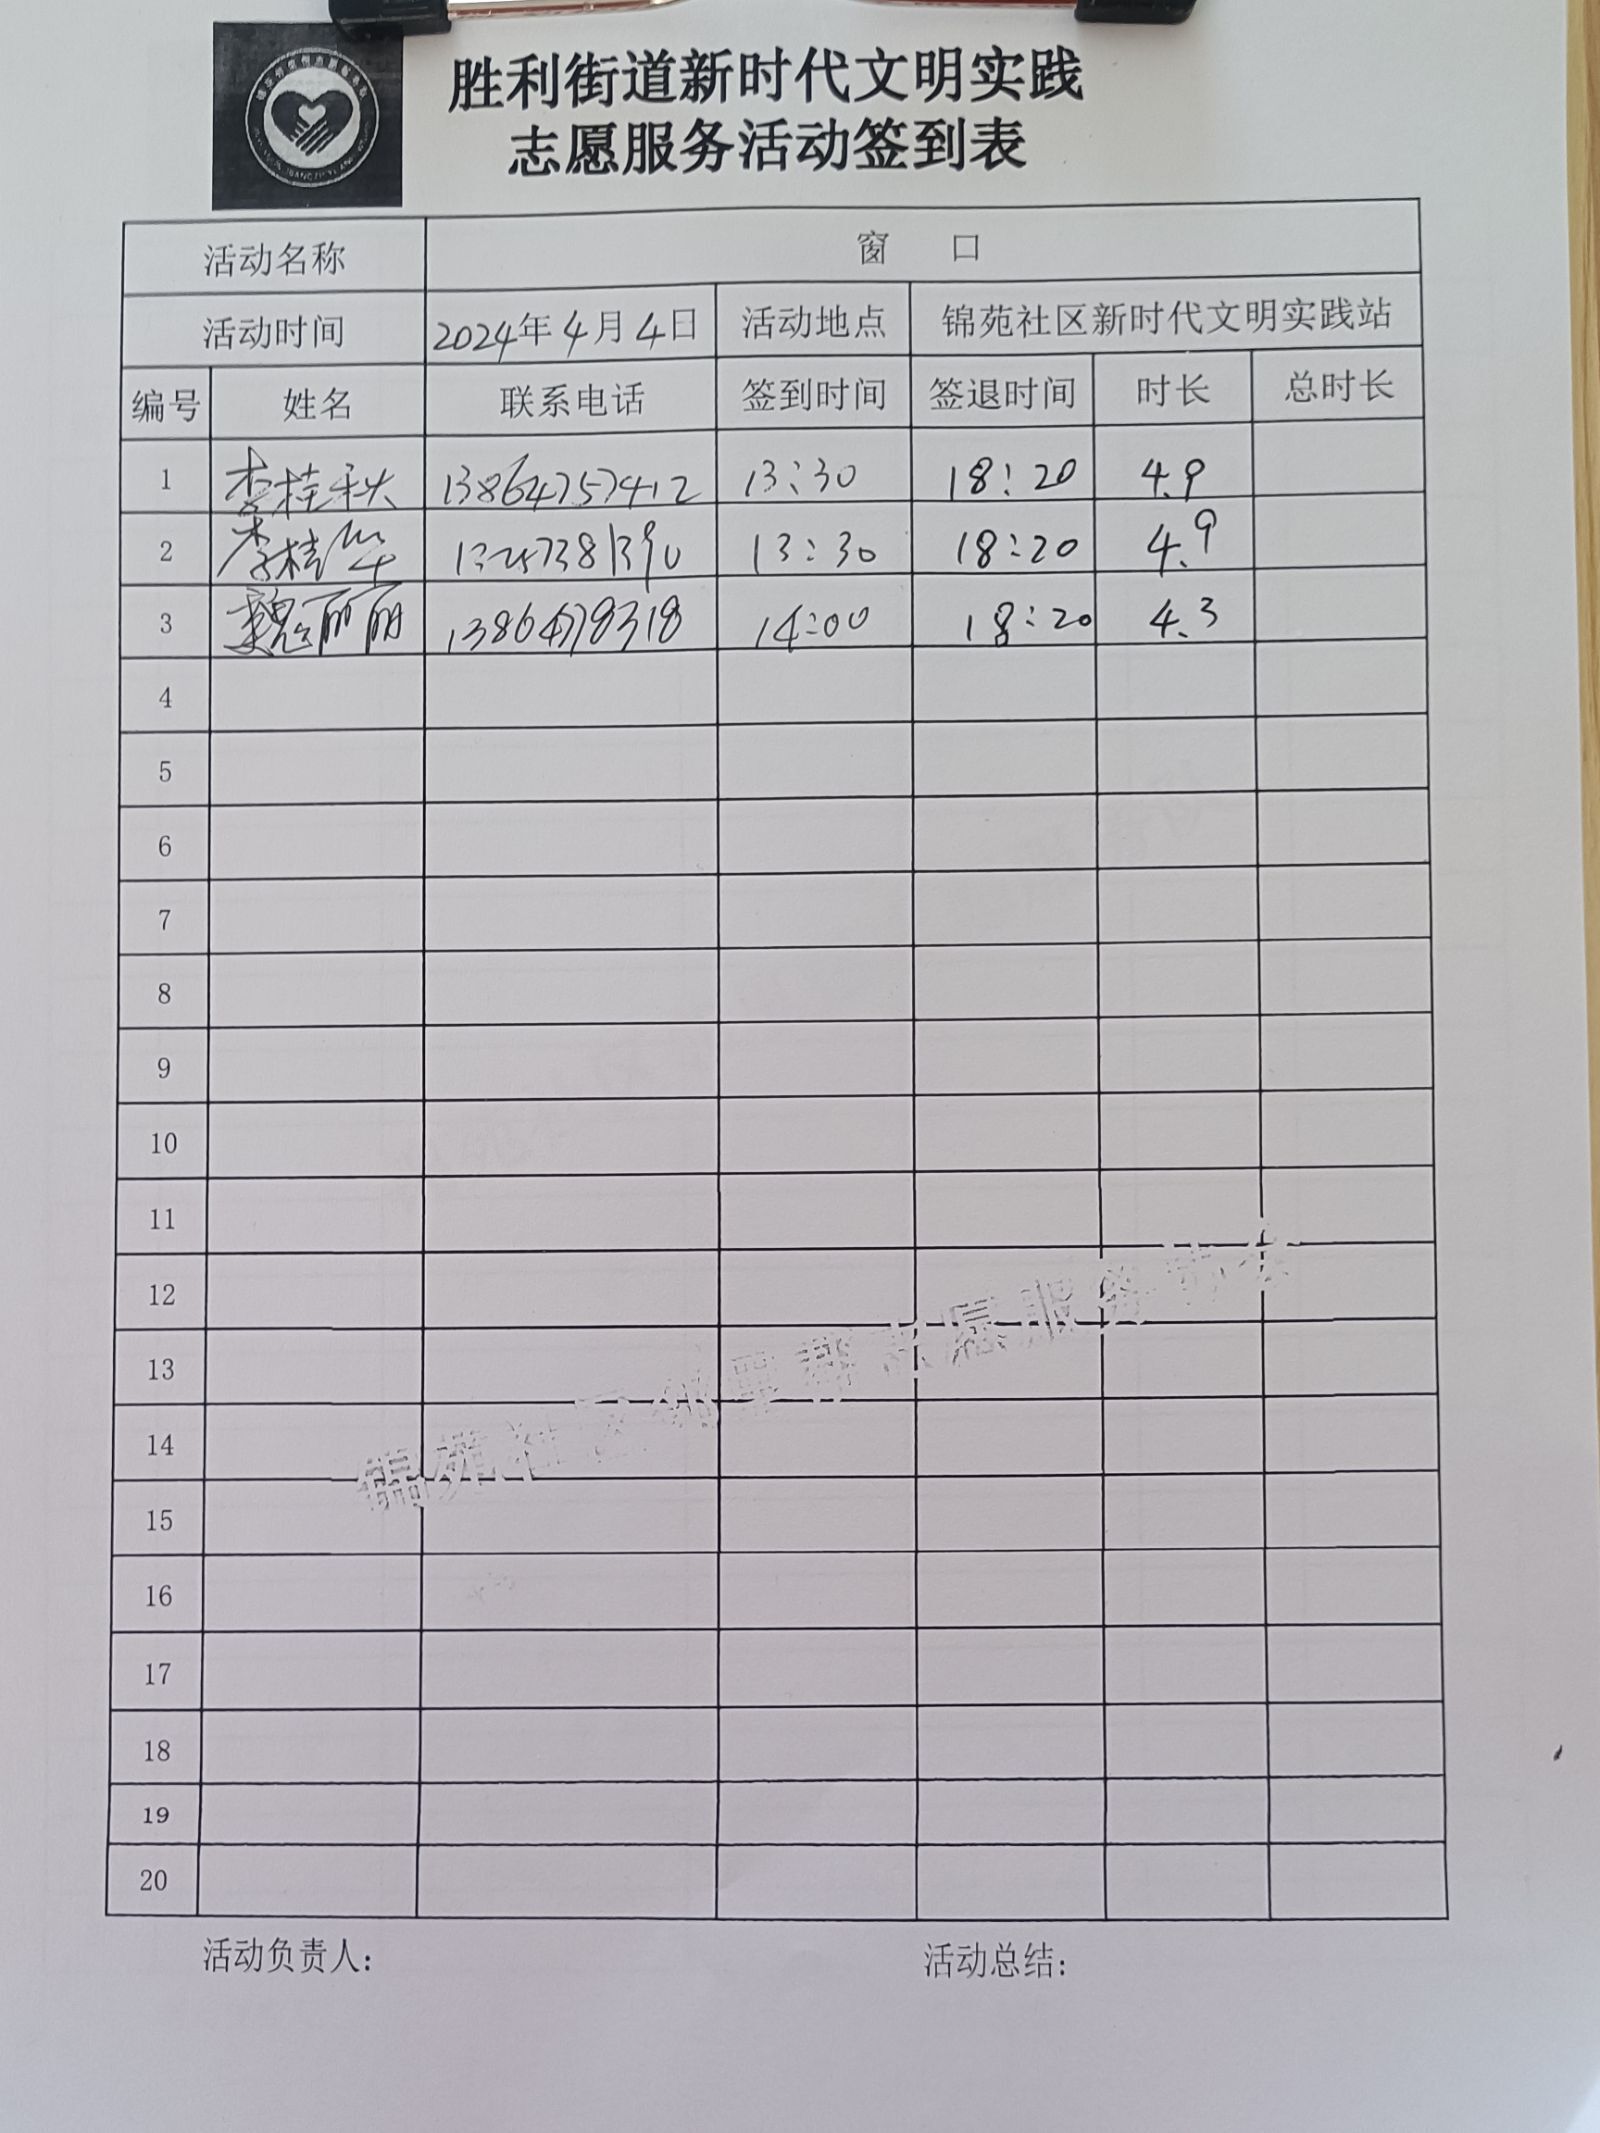 胜利街道新时代文明实践
志愿服务活动签到表
活动名称 窗 口
活动时间 2024年4月4日 活动地点 锦苑社区新时代文明实践站
编号 姓名 联系电话 签到时间 签退时间 时长 总时长
1 李桂秋 13864757412 13:30 18:20 4.9
2 李桂华 13:30 18:20 4.9
3 魏丽丽 13864778318 14:00 18:20 4.3
4
5
6
7
8
9
10
11
12
13
14
15
16
17
18
19
20
锦苑社区邻里帮志愿服务协会
活动负责人:
活动总结: